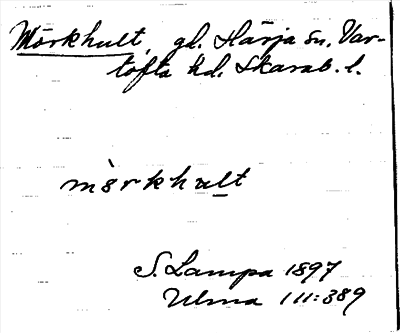 Mörkhult, gl. Härja sn. Var-
tofta hd. Skarab. l.
mörkhult
S. Lampa 1897
Ulma 111:389